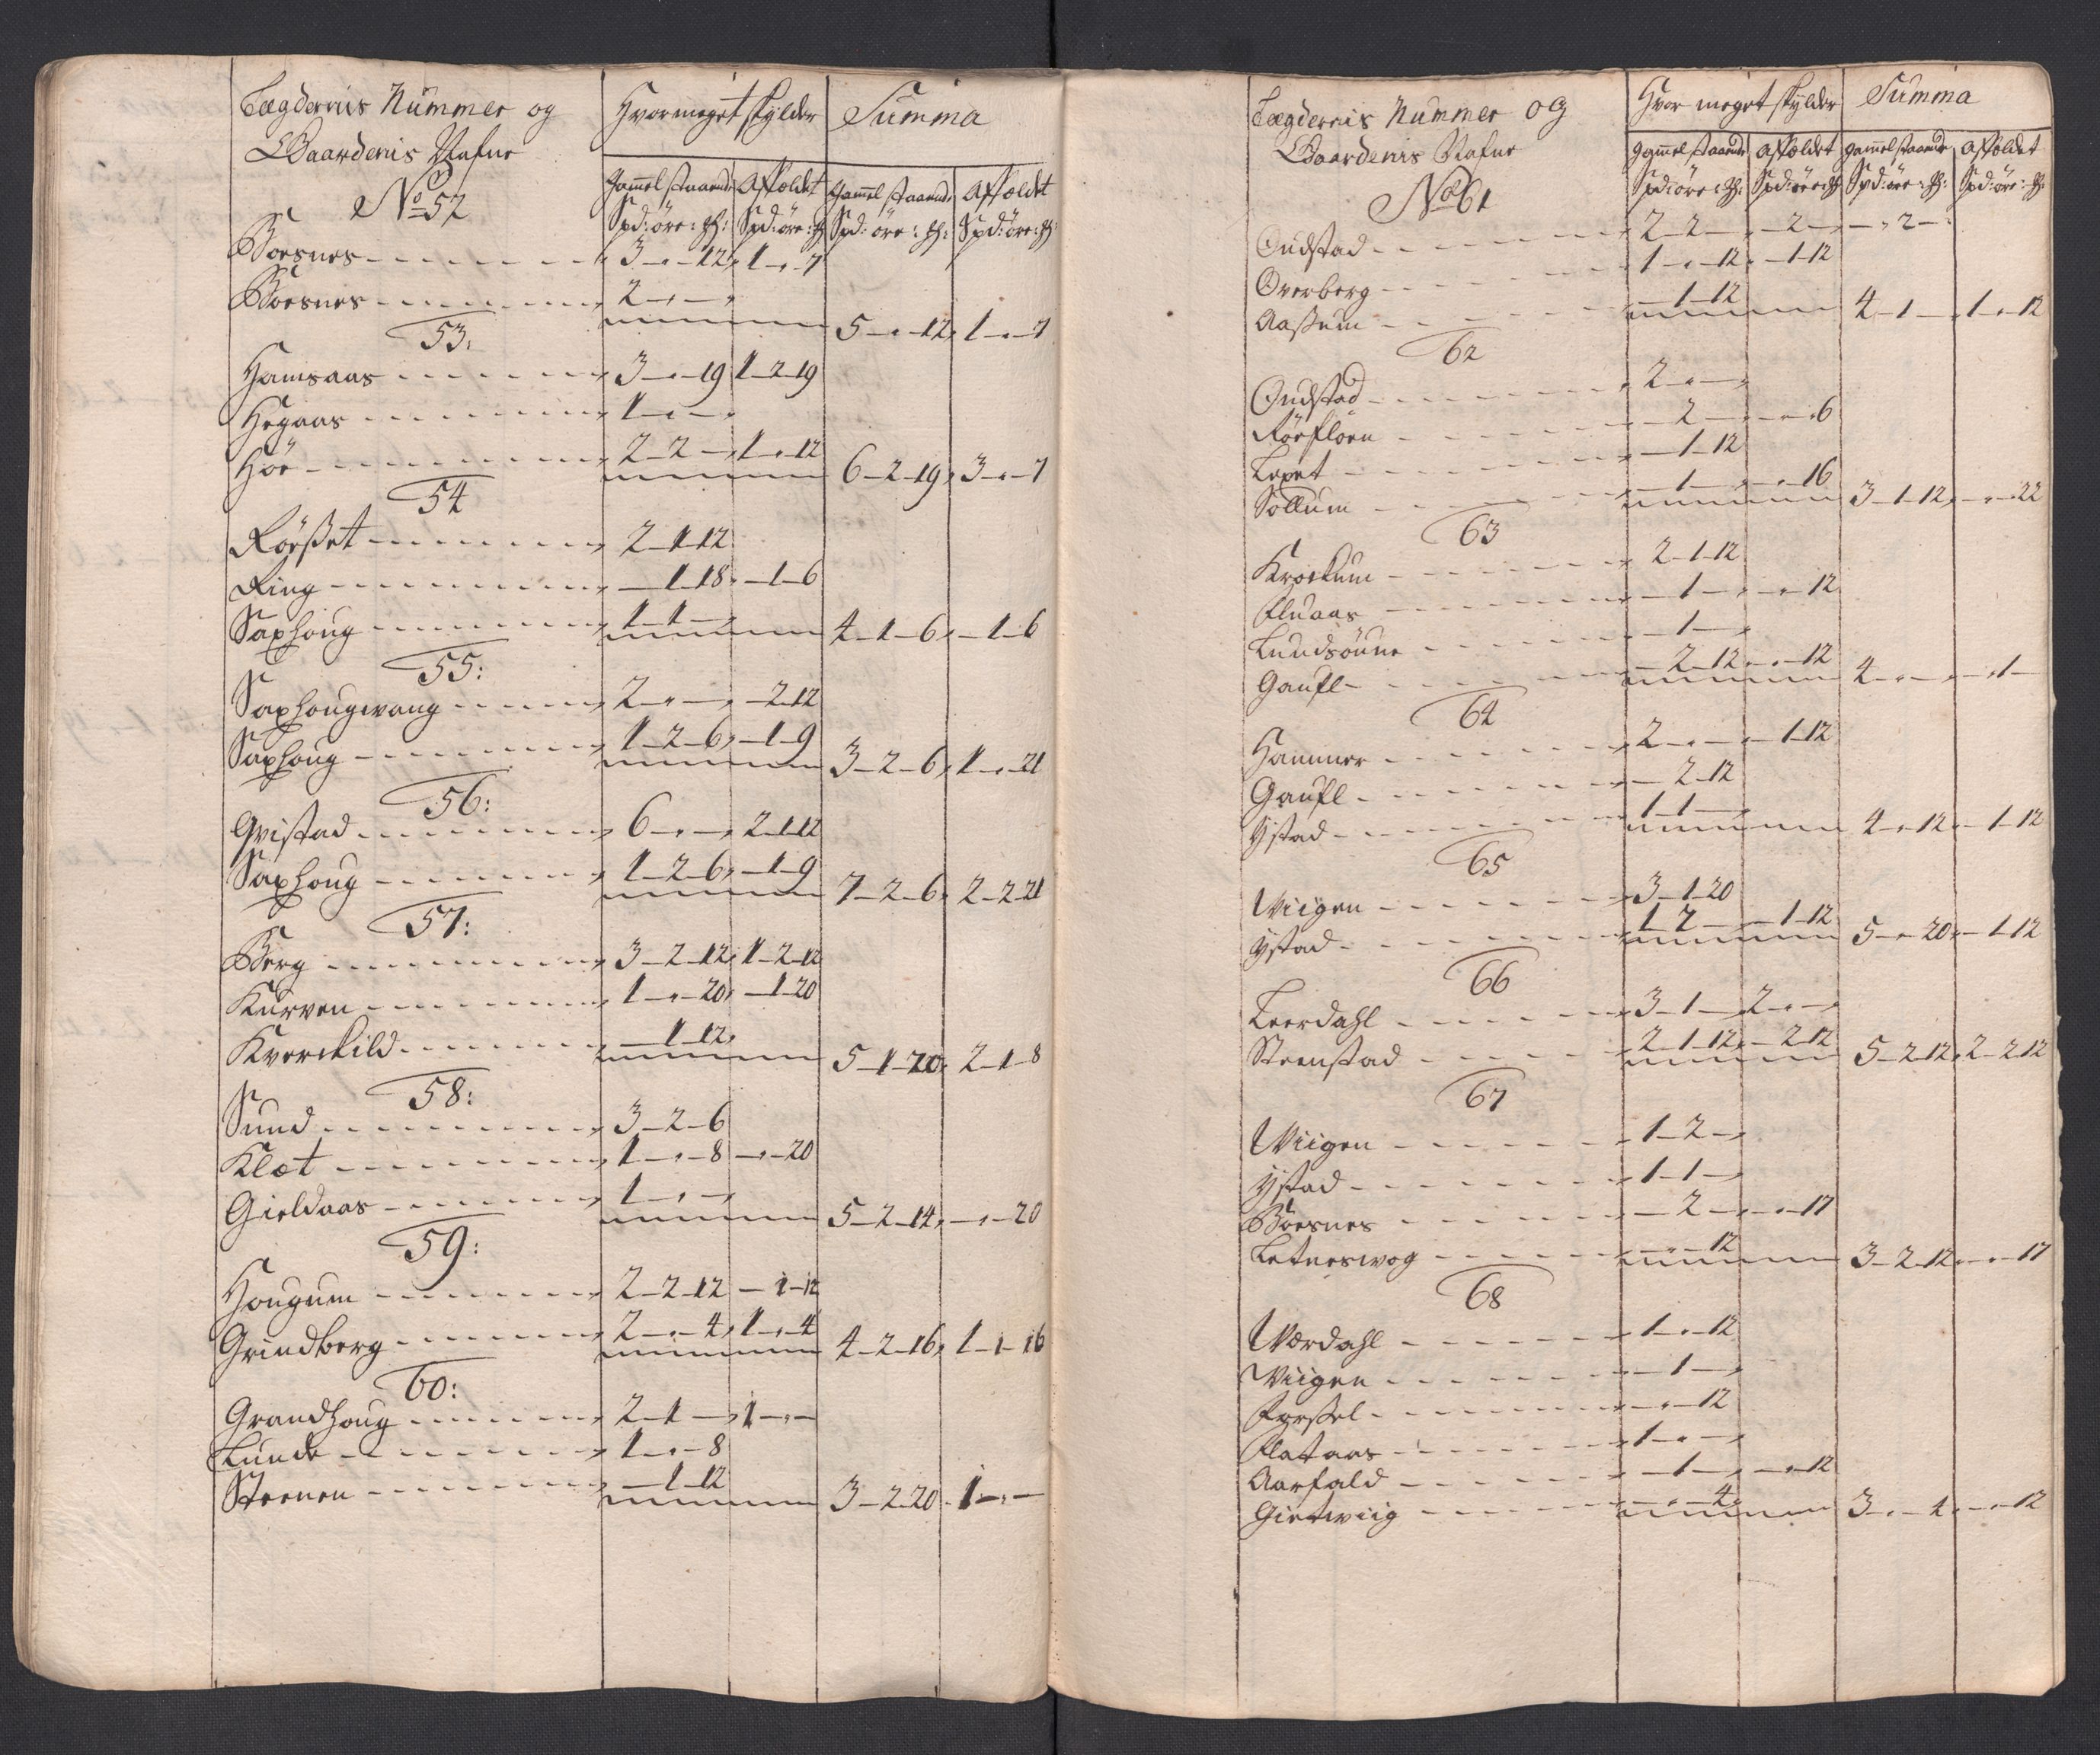 Lægdernis Nummer og Hvor meget skylder Summa
Gaardenis Nafne
Gammel staaende Affældet Gammel staaende Affældet
No 52 Spd: öre: Spd: öre: Spd: öre: Spd: öre:
Boesnes 3 - " - 12 1 - " - 7
Boesnes 2 - " - "
5 - " - 12 1 - " - 7
53:
Hamsaas 3 - " - 19 1 - 2 - 19
Hegaas 1 - " - "
Höe 2 - 2 - " 1 - " - 12 6 - 2 - 19 3 - " - 7
54
Röeßet 2 - 1 - 12
Ring - 1 - 18 - 1 - 6
Saxhoug 1 - 1 - " 4 - 1 - 6 - 1 - 6
55:
Saxhougwang 2 - " - " - 2 - 12
Saxhoug 1 - 2 - 6 - 1 - 9 3 - 2 - 6 1 - " - 21
56:
Qvistad 6 - " - " 2 - 1 - 12
Saxhoug 1 - 2 - 6 - 1 - 9 7 - 2 - 6 2 - 2 - 21
57:
Berg 3 - 2 - 12 1 - 2 - 12
Kurven 1 - " - 20 - 1 - 20
Kverckild - 1 - 12 5 - 1 - 20 2 - 1 - 8
58:
Sund 3 - 2 - 6
Klæt 1 - " - 8 - " - 20
Gieldaas 1 - " - " 5 - 2 - 14 - " - 20
59:
Hougum 2 - 2 - 12 - 1 - 12
Grindberg 2 - " - 4 1 - " - 4 4 - 2 - 16 1 - 1 - 16
60:
Grandhoug 2 - 1 - " 1 - " -
Lunde 1 - " - 8
Steenen - 1 - 12 3 - 2 - 20 1 - " -
Lægdernis Nummer og Hvor meget skylder Summa
Gaardenis Nafne
Gammel staaende Affældet Gammel staaende Affældet
No 61 Spd: öre: Spd: öre: Spd: öre: Spd: öre:
Oudstad 2 - 2 - " - 2 - " - " 2 -
Overberg 1 - " - 12 - 1 - 12
Aaßum - 1 - 12 4 - 1 - 1 - " - 12
62
Oudstad 2 - " - "
Röeflöen - 2 - " - " 6
Lexet - 1 - 12
Sollum - 1 - " - 16 3 - 1 - 12 - " - 22
63
Krockum 2 - 1 - 12
Fluaas - 1 - " - " - 12
Lundsöune - 1 - "
Gaufl - 2 - 12 - " - 12 4 - " - " - 1 -
64
Hammer 2 - " - " - 1 - 12
Gaufl - 2 - 12
Ystad 1 - 1 - " 4 - " 12 - 1 - 12
65
Wiigen 3 - 1 - 20
Ystad 1 - 2 - - 1 - 12 5 - " - 20 - 1 - 12
66
Leerdahl 3 - 1 - 2 - " - "
Steenstad 2 - 1 - 12 - 2 - 12 5 - 2 - 12 2 - 2 - 12
67
Wiigen 1 - 2 - "
Ystad 1 - 1 - "
Böesnes - 2 - " - 17
Letneswog - " - 12 3 - 2 - 12 - " - 17
68
Wærdahl 1 - " - 12
Wiigen - 1 - "
Forßel - " - 12
Flataas 1 - " - "
Aarfald - 1 - " - " - 12
Gietwiig - " - 4 3 - " - 4 - " - 12